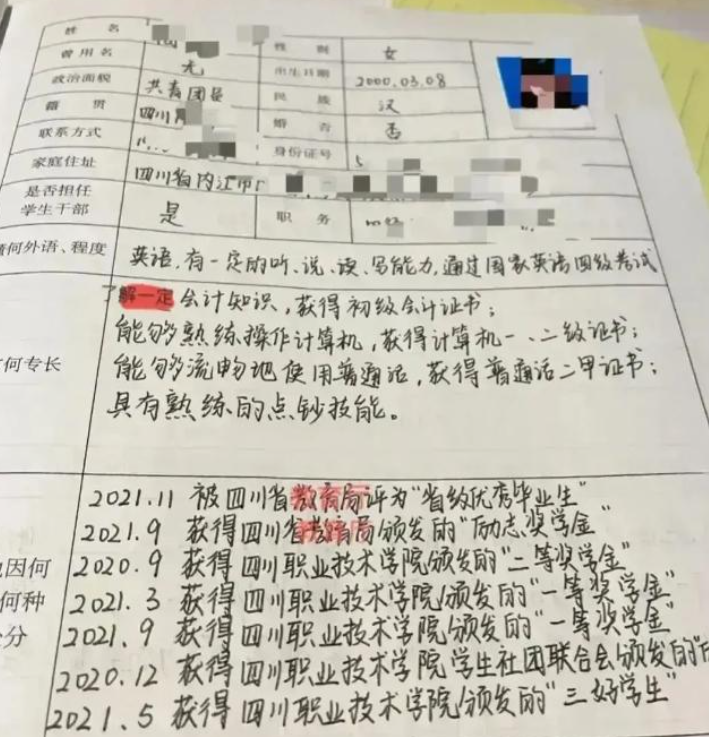 姓 名
性 别 女
曾用名 无
出生日期 2000.03.08
政治面貌 共青团员
民 族 汉
籍 贯 四川
婚 否 否
联系方式
身份证号
家庭住址 四川省内江市
是否担任
学生干部 是 职 务
何外语、程度 英语,有一定的听、说、读、写能力,通过国家英语四级考试
了解一定会计知识,获得初级会计证书;
能够熟练操作计算机,获得计算机一、二级证书;
何专长 能够流畅地使用普通话,获得普通话二甲证书;
具有熟练的点钞技能。
2021.11 被四川省教育局评为"省级优秀毕业生"
2021.9 获得四川省教育局颁发的"励志奖学金"
因何 2020.9 获得四川职业技术学院颁发的"二等奖学金"
何种 2021.3 获得四川职业技术学院颁发的"一等奖学金"
分 2021.9 获得四川职业技术学院颁发的"一等奖学金"
2020.12 获得四川职业技术学院学生社团联合会颁发的"
2021.5 获得四川职业技术学院颁发的"三好学生"